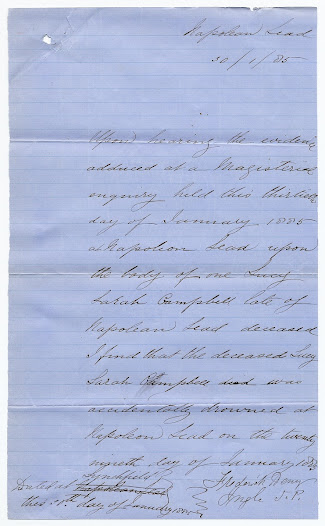 Napoleon Lead
30/1/85
Upon hearing the evidence
adduced at a Magisterial
enquiry held this thirtieth
day of January 1885
at Napoleon Lead upon
the body of one Lucy
Sarah Campbell late of
Napoleon Lead deceased
I find that the deceased Lucy
Sarah Campbell was
accidentally drowned at
Napoleon Lead on the twenty
nineth day of January 1885
Dated at
this 30th day of January 1885
J.P.